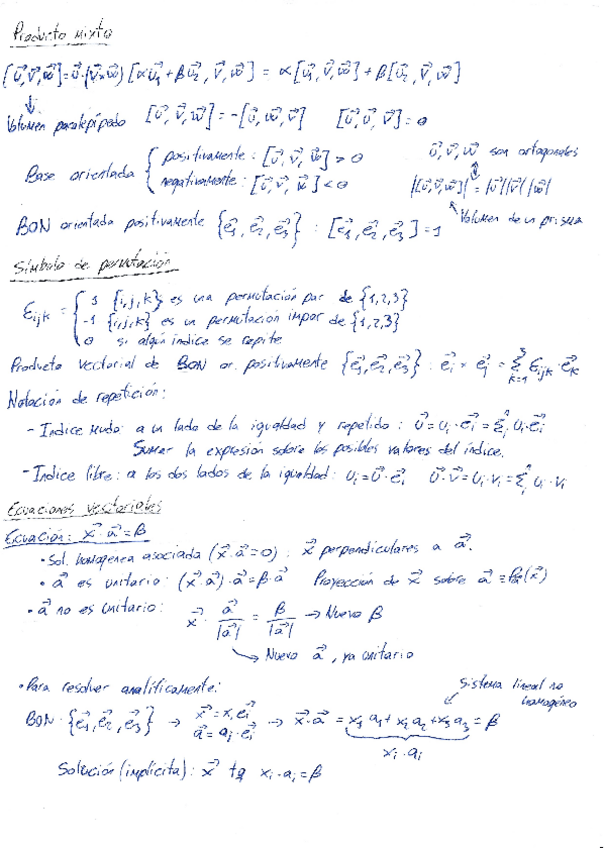 Producto mixto
[u⃗,v⃗,w⃗]=u⃗·(v⃗×w⃗) [αu⃗₁+βu⃗₂, v⃗, w⃗] = α[u⃗₁,v⃗,w⃗]+β[u⃗₂,v⃗,w⃗]
↓
Volumen paralepípedo [u⃗,v⃗,w⃗]=-[u⃗,w⃗,v⃗] [u⃗,u⃗,v⃗]=0
Base orientada { positivamente: [u⃗,v⃗,w⃗]>0 u⃗,v⃗,w⃗ son ortogonales
negativamente: [u⃗,v⃗,w⃗]<0 |[u⃗,v⃗,w⃗]|=|u⃗||v⃗||w⃗|
Volumen de un prisma
BON orientada positivamente {e⃗₁,e⃗₂,e⃗₃} : [e⃗₁,e⃗₂,e⃗₃]=1
Símbolo de permutación
εijk = { 1 {i,j,k} es una permutación par de {1,2,3}
-1 {i,j,k} es un permutación impar de {1,2,3}
0 si algún índice se repite
Producto vectorial de BON or. positivamente {e⃗₁,e⃗₂,e⃗₃} : e⃗i × e⃗j = Σ³k=1 εijk·e⃗k
Notación de repetición:
- Indice mudo: a un lado de la igualdad y repetido : u⃗=ui·e⃗i=Σ³i ui·e⃗i
Sumar la expresión sobre los posibles valores del índice.
- Indice libre: a los dos lados de la igualdad: ui=u⃗·e⃗i u⃗·v⃗=ui·vi=Σ³i ui·vi
Ecuaciones vectoriales
Ecuación: x⃗·a⃗=β
• Sol. homogenea asociada (x⃗·a⃗=0) : x⃗ perpendiculares a a⃗.
• a⃗ es unitario: (x⃗·a⃗)·a⃗=β·a⃗ Proyección de x⃗ sobre a⃗ ≡ (x⃗)
• a⃗ no es unitario: x⃗ · a⃗/|a⃗| = β/|a⃗| → Nuevo β
↳ Nuevo a⃗, ya unitario
• Para resolver analíticamente:
Sistema lineal no homogéneo
BON {e⃗₁,e⃗₂,e⃗₃} → x⃗=xi·e⃗i a⃗=ai·e⃗i → x⃗·a⃗ = x₁a₁+x₂a₂+x₃a₃=β
xi·ai
Solución (implícita): x⃗ tq xi·ai=β